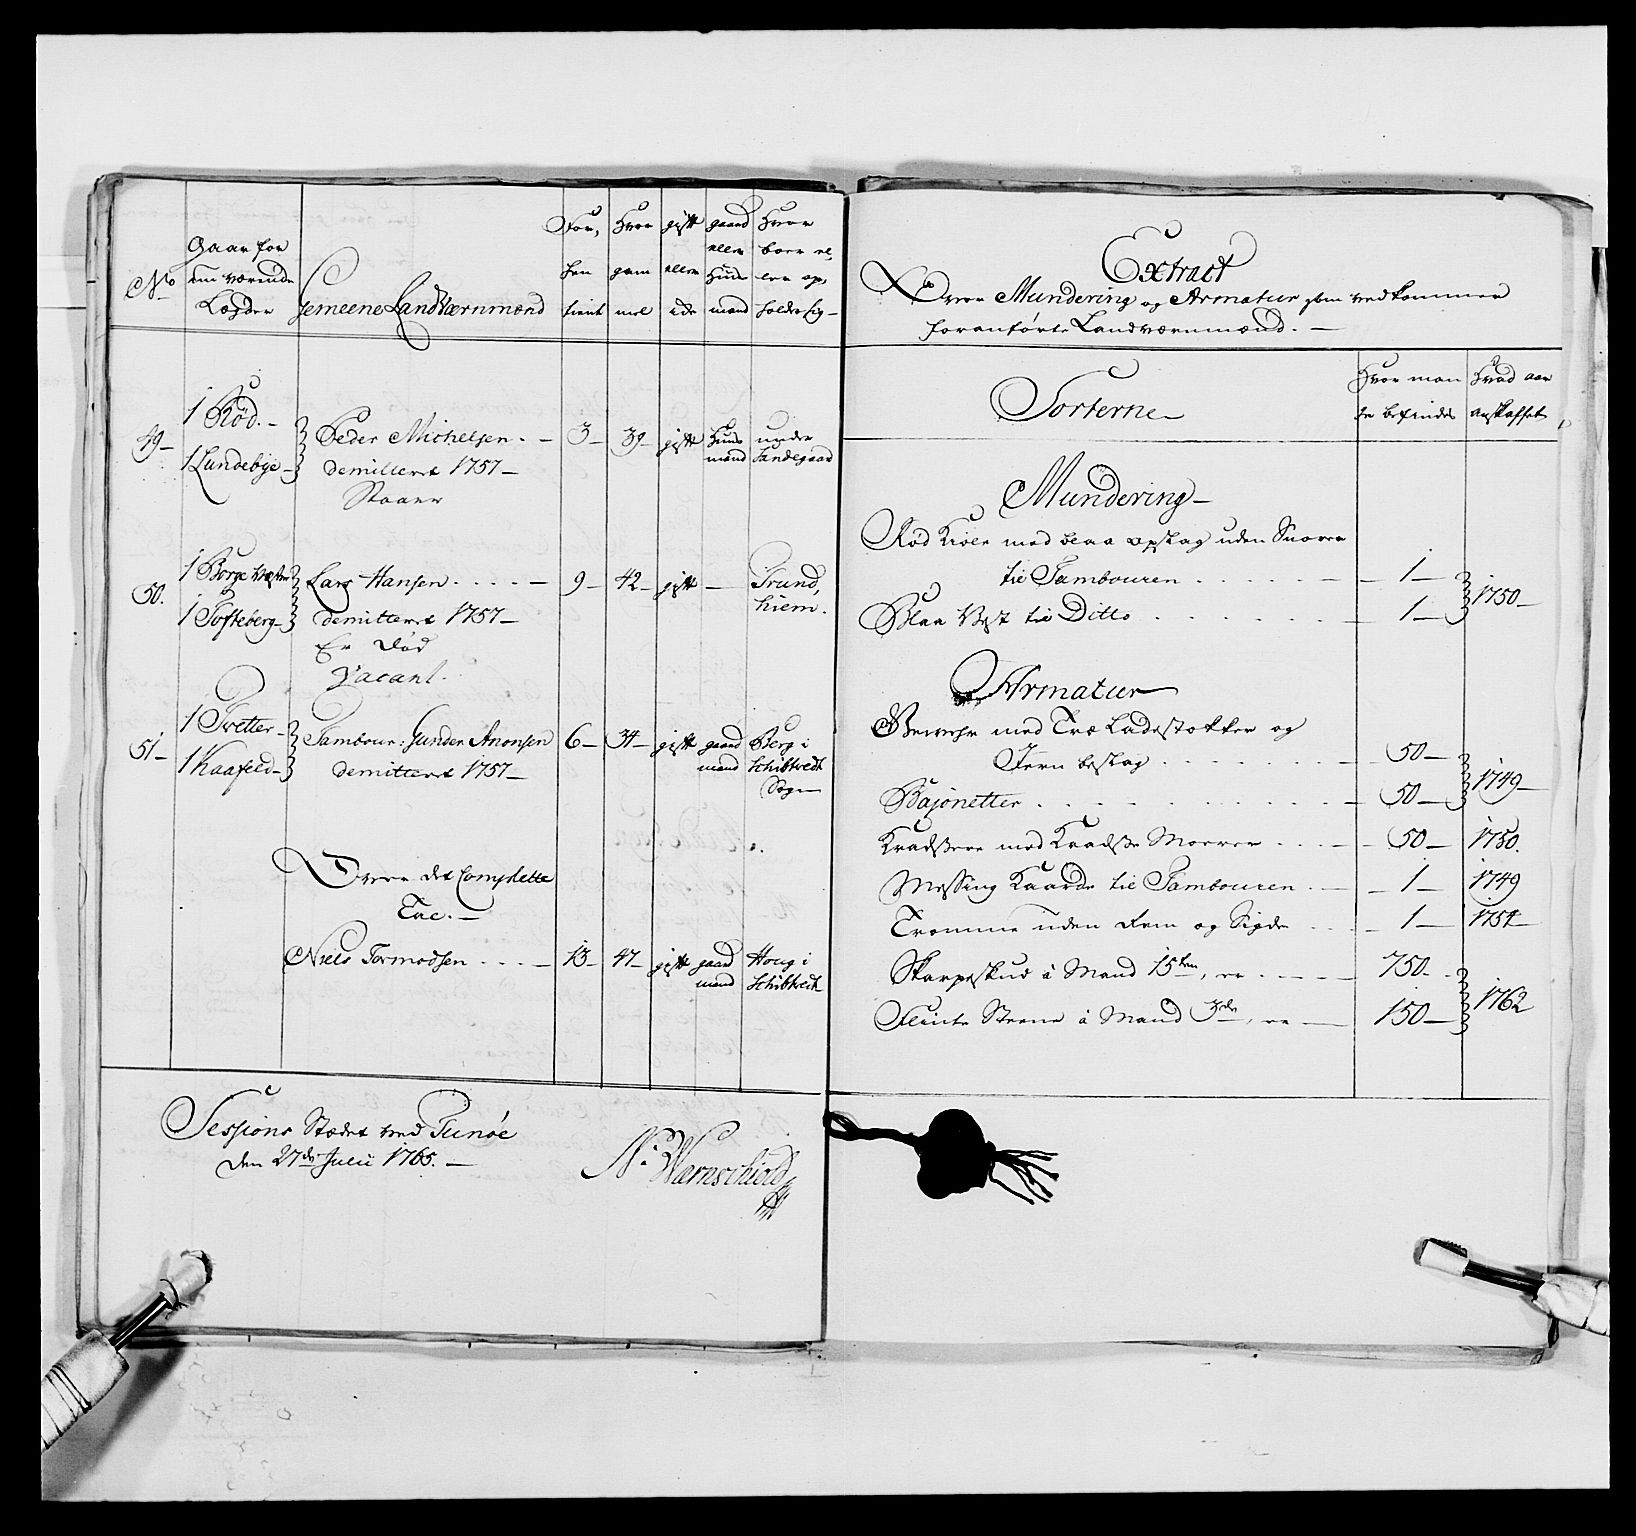 No
Gaar for
nu værende
Lægder
Gemeene Landværnmænd
For,
hen
tient
Hvor
gam
mel
gift
eller
ede
gaard
eller
Huus
mand
Hvor
boer el,
ler op,
holder sig
49
1 Rød.
1 Lundebye
Peder Michelsen
demitteret 1757
Staaer
3
39
gift
Huus
mand
under
Sandegaard
50.
1 Borge
1 Tofteberg
Lars Hansen
demitteret 1757
Er Død
Vacant.
9
42
gift
Trund,
hiem.
51
1 Tvetter
1 Kaafeld
Tambour: Gunder Anonsen
demitteret 1757
6
34
gift
gaard
mand
Berg i
Schibtvedt
Sogn
Over det Complette
Tal.
Niels Tormodsen
13
47
gift
gaard
mand
Houg i
Schibtvedt
Sessions Stædet ved Tunøe
den 27de Julii 1765.
N: Wærnschiold
Extract
Over Mundering og Armatur som vedkommer
foranførte Landværnmænd.
Sorterne
Hvor man
ge befindes
Hvad aar
anskaffet
Mundering
Rød Kiole med blaa opslag uden Snorer
til Tambouren 1
Blaa Vest til Ditto 1
1750
Armatur
Gewehr med Træ Ladestokker og
Jern beslag 50
Bajonetter 50
1749
Kradsere med Kradse 50 1750.
Messing Kaarde til Tambouren 1 1749
Tromme uden Rem og 1 1754
Skarpeskud á Mand 15ten, er 750
Flinte Steene á Mand 3de, er 150
1762